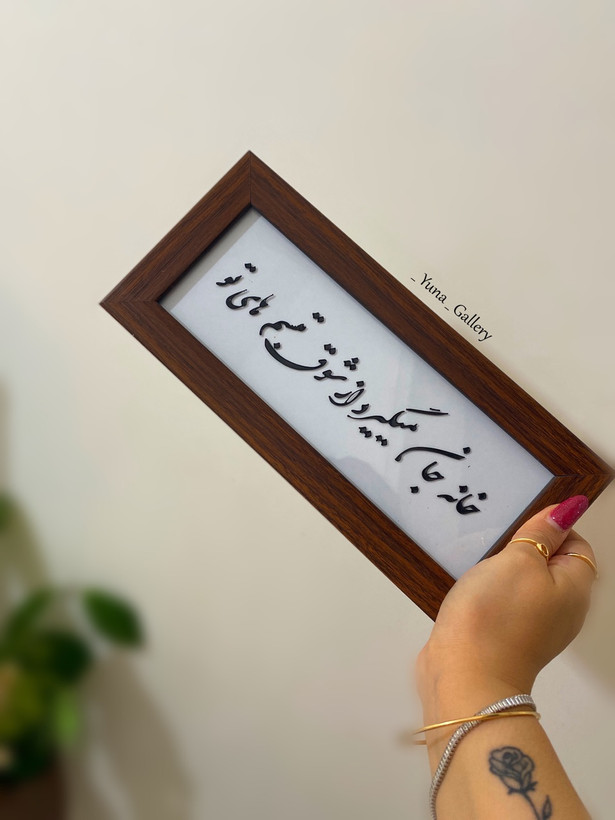 خانه جان میگیرد از شوق تبسم های تو
_Yuna_Gallery